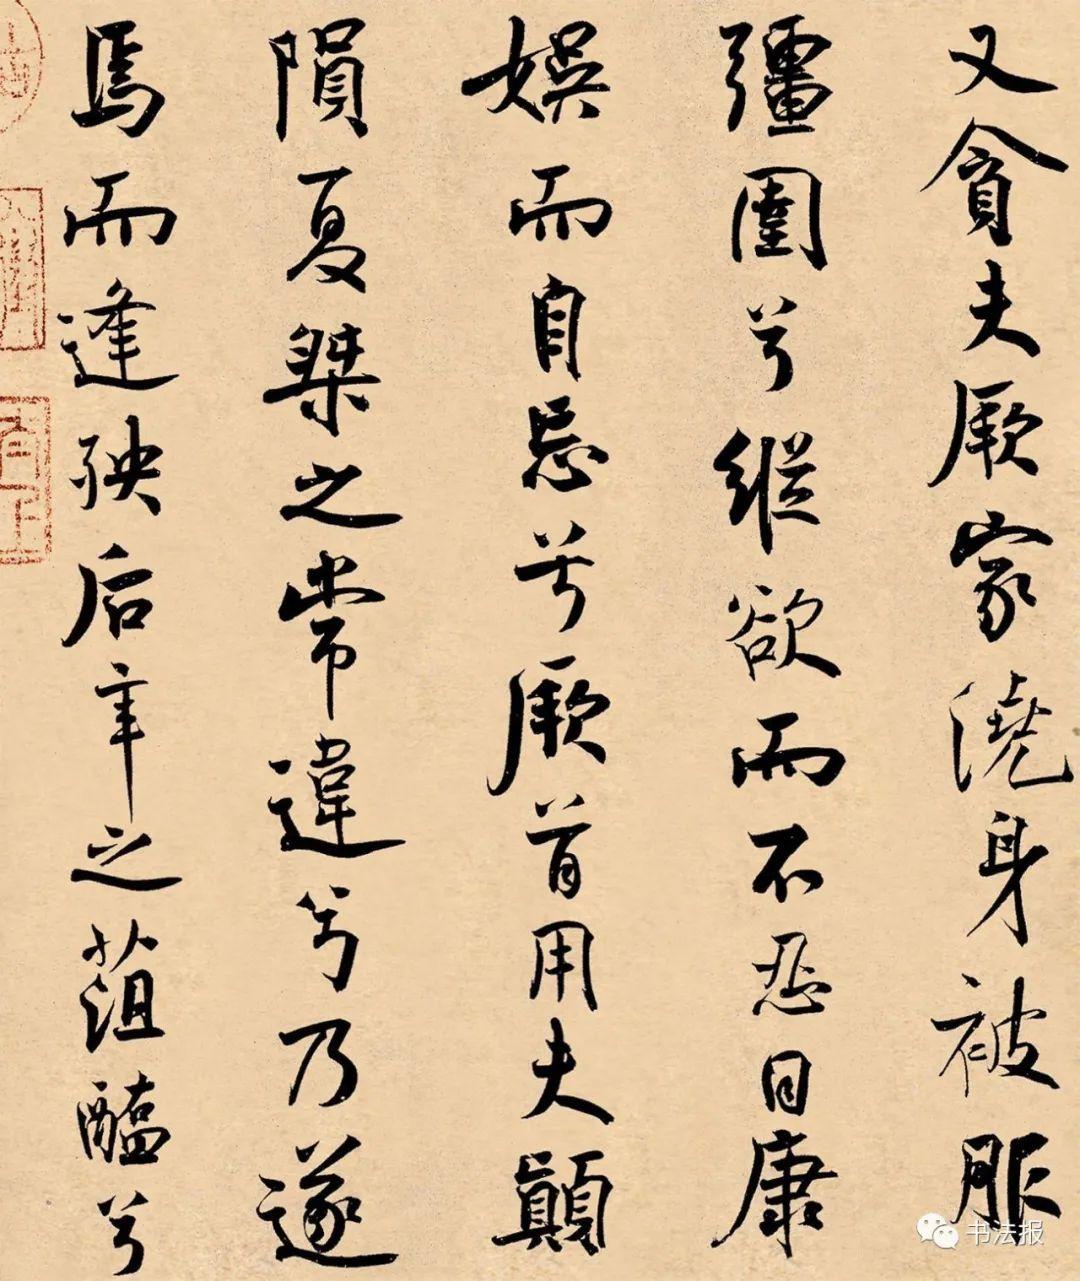 又貪夫厥家澆身被服
彊圉兮縱欲而不忍日康
娛而自忘兮厥首用夫顛
隕夏桀之常違兮乃遂
焉而逢殃后辛之菹醢兮
书法报